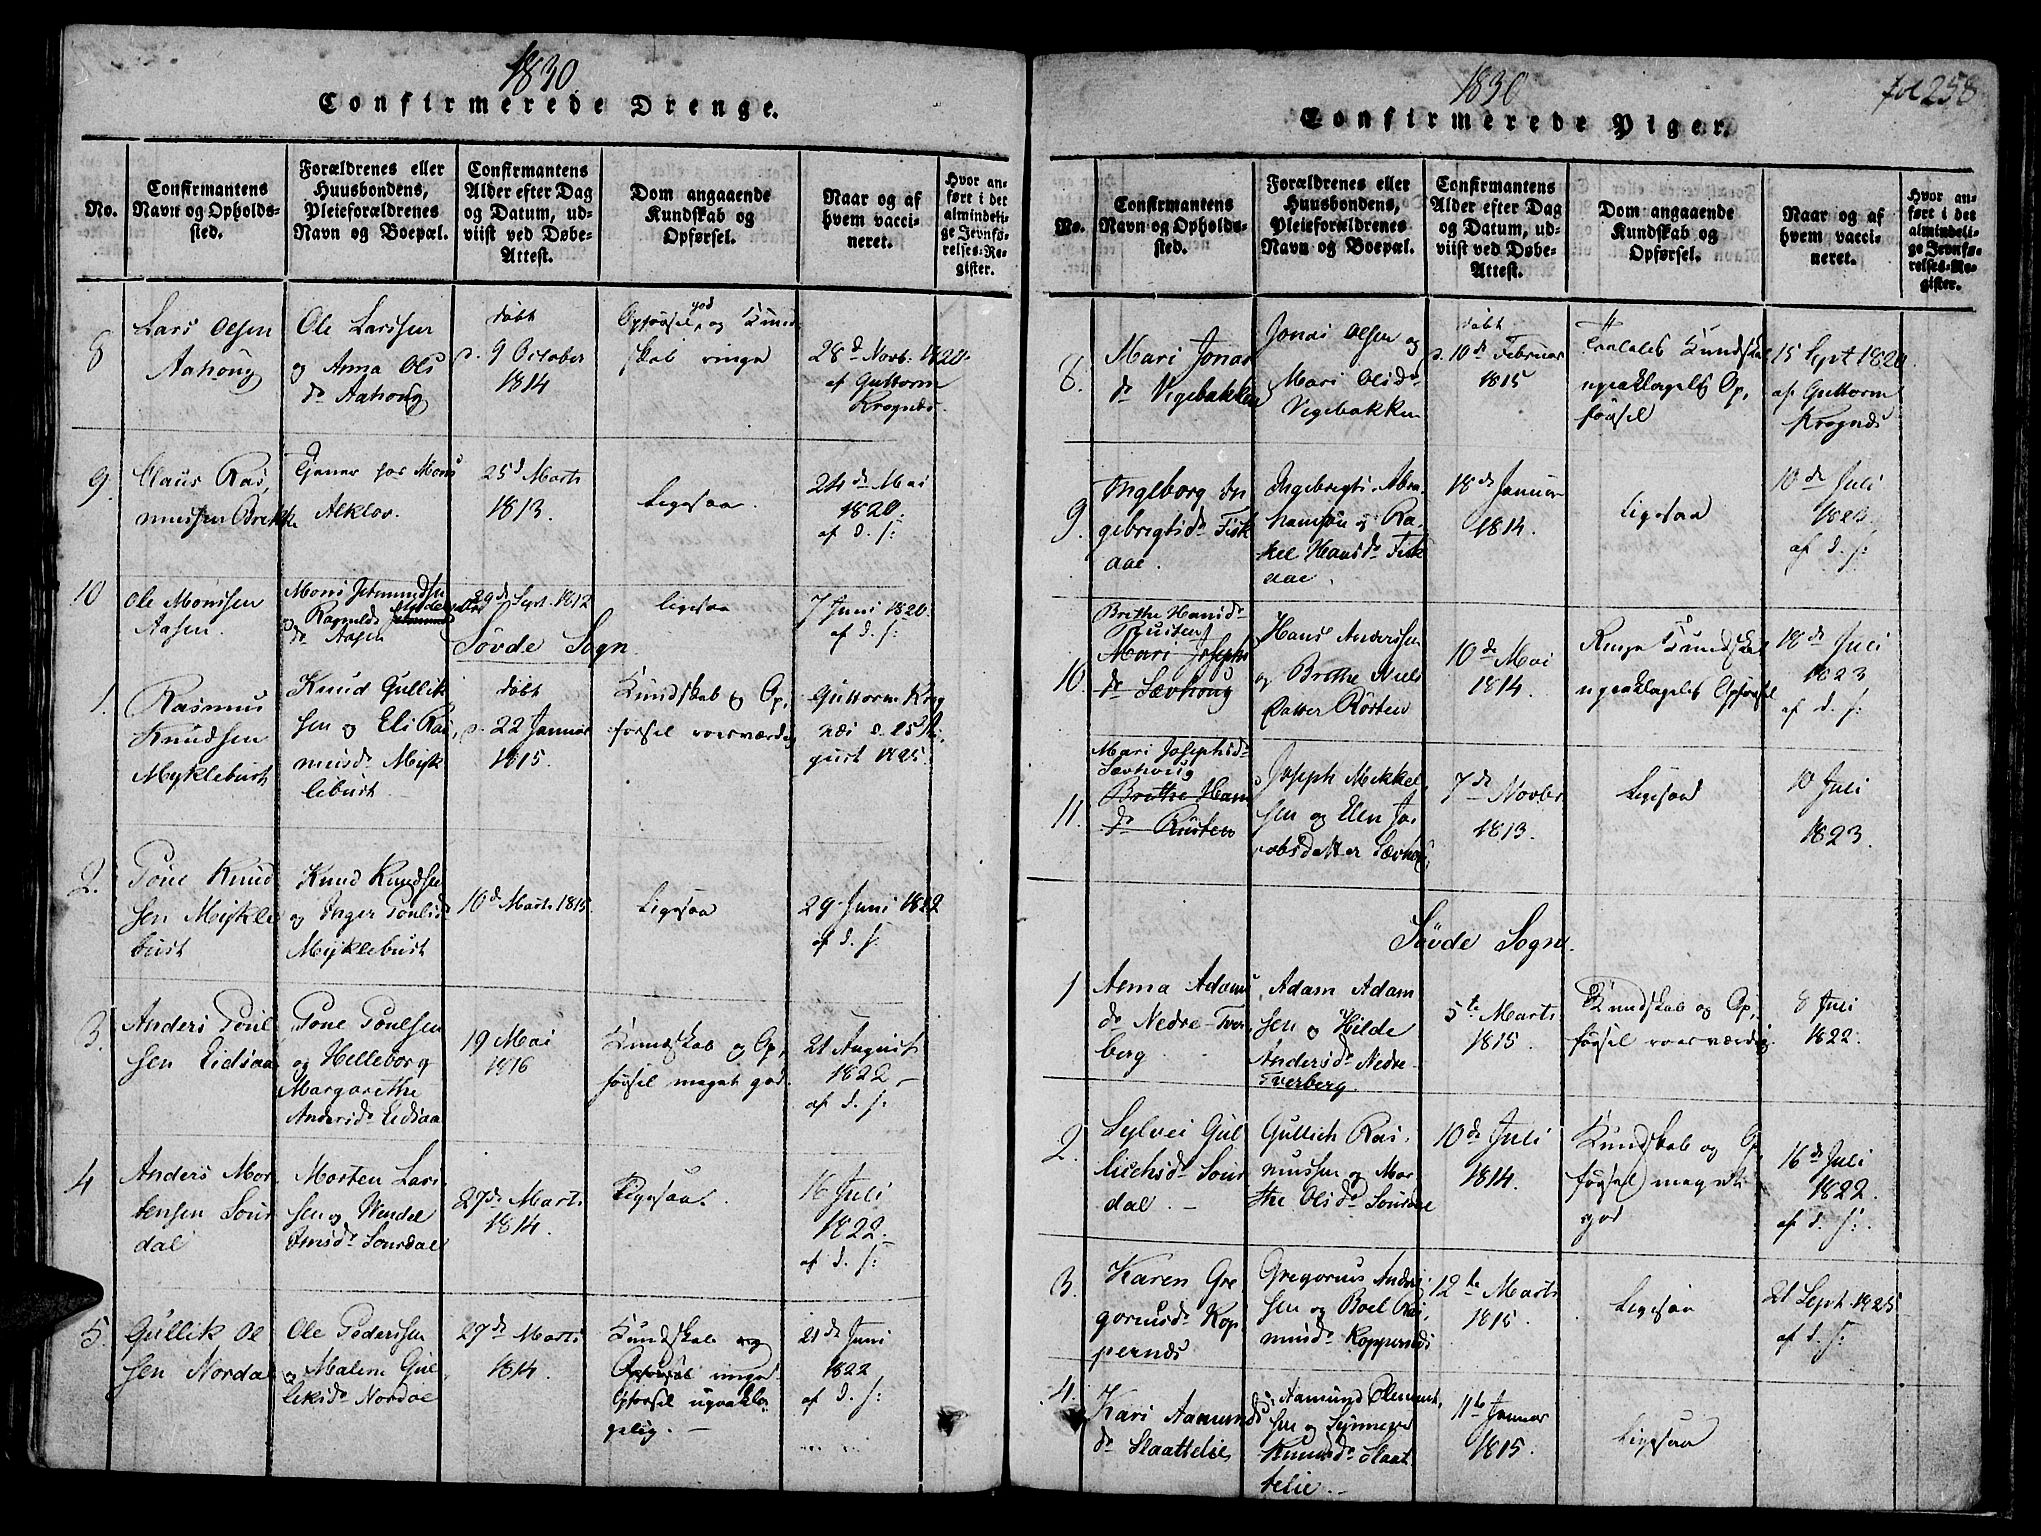 1830
Confirmerede Drenge.
No.
Confirmantens
Navn og Opholds-
sted.
Forældrenes eller
Huusbondens,
Pleieforældrenes
Navn og Boepæl.
Confirmantens
Alder efter Dag
og Datum, ud-
viist ved Døbe-
Attest.
Dom angaaende
Kundskab og
Opførsel.
Naar og af
hvem vacci-
neret.
Hvor an-
ført i det
almindeli-
ge Jevnfø-
relses-Re-
gister.
8
Lars Olsen
Aahoug
Ole Larssen
og Anna Ols
dr Aahoug
døbt
d. 9 October
1814
Opførsel god og Kund
skab ringe
28d Novb. 1820
af Guttorm
Krognæs.
9.
Claus Ras,
mussen Brekke
Tjener hos Mons
Alklov.
25d Marts
1813.
Ligesaa.
24de Mai
1820.
af d. s:
10
Ole Monssen
Aasen.
Mons
og Ragnilde
dr Aasen
29de Sept. 1812
ligesaa
7 Juni 1820.
af d. s:
Søvde Sogn.
1.
Rasmus
Knudsen
Myklebust
Knud Gullik
sen og Eli Ras,
musdr Mykl
lebust
døbt
d. 22 Januar
1815.
Kundskab og Op,
førsel roesværdig
Guttorm Krog
næs d. 25 Au,
gust 1825.
2.
Poul Knud
sen Mykle
bust
Knud Knudsen
og Inger Poulsdr
Myklebust
10de Marts 1815.
Ligesaa
29 Juni 1822
af d. s.
3.
Anders Poul
sen Eidsaa
Poul Poulsen
og Helleborg
Margarethe
Andersdr Eidsaa
19 Mai
1816
Kundskab og Op,
førsel meget god.
21 August
1822
af d. s:
4
Anders Mor
tensen Sour
dal
Morten Lars
sen og Wendel
Jonsdr Sourdal
27de Marts
1814.
Ligesaa.
16 Juli
1822.
af d. s:
5.
Gullik Ol
sen Nordal
Ole Pedersen
og Malene Gul
leksdr Nordal
27de Marts
1814.
Kundskab og
Opførsel ringe
Opførsel upaakla,
gelig.
21de Juni
1822
af d. s:
1830
fol 258
Confirmerede Piger.
No.
Confirmantens
Navn og Opholds-
sted.
Forældrenes eller
Huusbondens,
Pleieforældrenes
Navn og Boepæl.
Confirmantens
Alder efter Dag
og Datum, ud-
viist ved Døbe-
Attest.
Dom angaaende
Kundskab og
Opførsel.
Naar og af
hvem vacci-
neret.
Hvor an-
ført i det
almindeli-
ge Jevnfø-
relses-Re-
gister.
8.
Mari Jonas
dr Vigebakken
Jonas Olsen og
Mari Olsdr
Vigebakken
døbt
d. 10de Februar
1815
Taalelig Kundskab
upaaklagelig Op,
førsel
15 Sept 1820
af Guttorm
Krognæs
9.
Ingeborg In
gebrigtsdr Fisk
aae.
Ingebrigt Abra
hamsen og Ra,
kel Hansdr Fisk
aae.
18de Januar
1814.
Ligesaa
10de Juli
1823.
af d. s:
10.
Brithe Hansdr
Rusten
Mari Josephs
dr Sævhoug
Hans Anderssen
og Brithe Niels
Datter Rosten
10de Mai
1814.
Ringe Kundskab
upaaklagelig Opførsel
18de Juli
1823
af d. s:
11.
Mari Josephsdr
Sævhoug
Brithe Hans
dr Rusten
Joseph Mikkel,
sen og Elen Ja,
cobsdatter Sævhoug
7de Novbr
1813.
Ligesaa
10 Juli
1823.
Søvde Sogn.
1
Anna Adams
dr Nedre-Tver
berg
Adam Adam
sen og Hilde
Andersdr Nedre-
Tverberg.
5te Marts
1815.
Kundskab og Op,
førsel roesværdig
8 Juli
1822.
2.
Sylvei Gul
lichsdr Sour
dal.
Gullich Ras,
mussen og Mar
the Olsdr Sourdal
10de Juli
1814.
Kundskab og Op,
førsel meget
god
16de Juli
1822.
af d. s:
3.
Karen Gre
goriusdr Kop
pernæs
Gregorius Anders
sen og Boel Ras,
musdr Koppernæs
12te Marts
1815.
Ligesaa
21 Sept. 1825
af d. s:
4.
Kari Aamunds
dr Slaattelie
Aamund Clement,
sen og Synneve
Knudsdr Slaat
telie.
11te Januar
1815.
Ligesaa